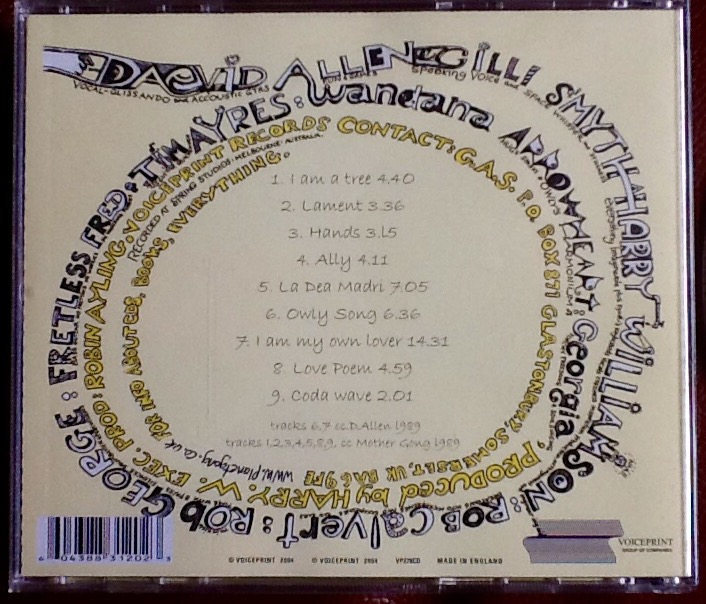 DAEVID ALLEN: GILLI SMYTH: HARRY WILLIAMSON: ROB Calvert: ROB GEORGE: FRETLESS FRED: TIM AYRES: Wandana ARROWHEART: Georgia
VOCAL-GLISSANDO AND ACCOUSTIC GTRS
Speaking Voice and SPACE WHISPER
VOICEPRINT RECORDS CONTACT: G.A.S. P.O. BOX 871 GLASTONBURY, SOMERSET UK BA6 9FE
www.planetgong.co.uk FOR INFO ABOUT CDS, BOOKS, EVERYTHING.
PRODUCED by HARRY. W. EXEC. PROD: ROBIN AYLING.
RECORDED AT SPRING STUDIOS. MELBOURNE. AUSTRALIA.
1. I am a tree 4.40
2. Lament 3.36
3. Hands 3.15
4. Ally 4.11
5. La Dea Madri 7.05
6. Owly Song 6.36
7. I am my own lover 14.31
8. Love Poem 4.59
9. Coda wave 2.01
tracks 6,7 cc D.Allen 1989
tracks 1,2,3,4,5,8,9, cc Mother Gong 1989
6 04388 31202 3
℗ VOICEPRINT 2004 © VOICEPRINT 2004 VP22NCD MADE IN ENGLAND
VOICEPRINT
GROUP OF COMPANIES